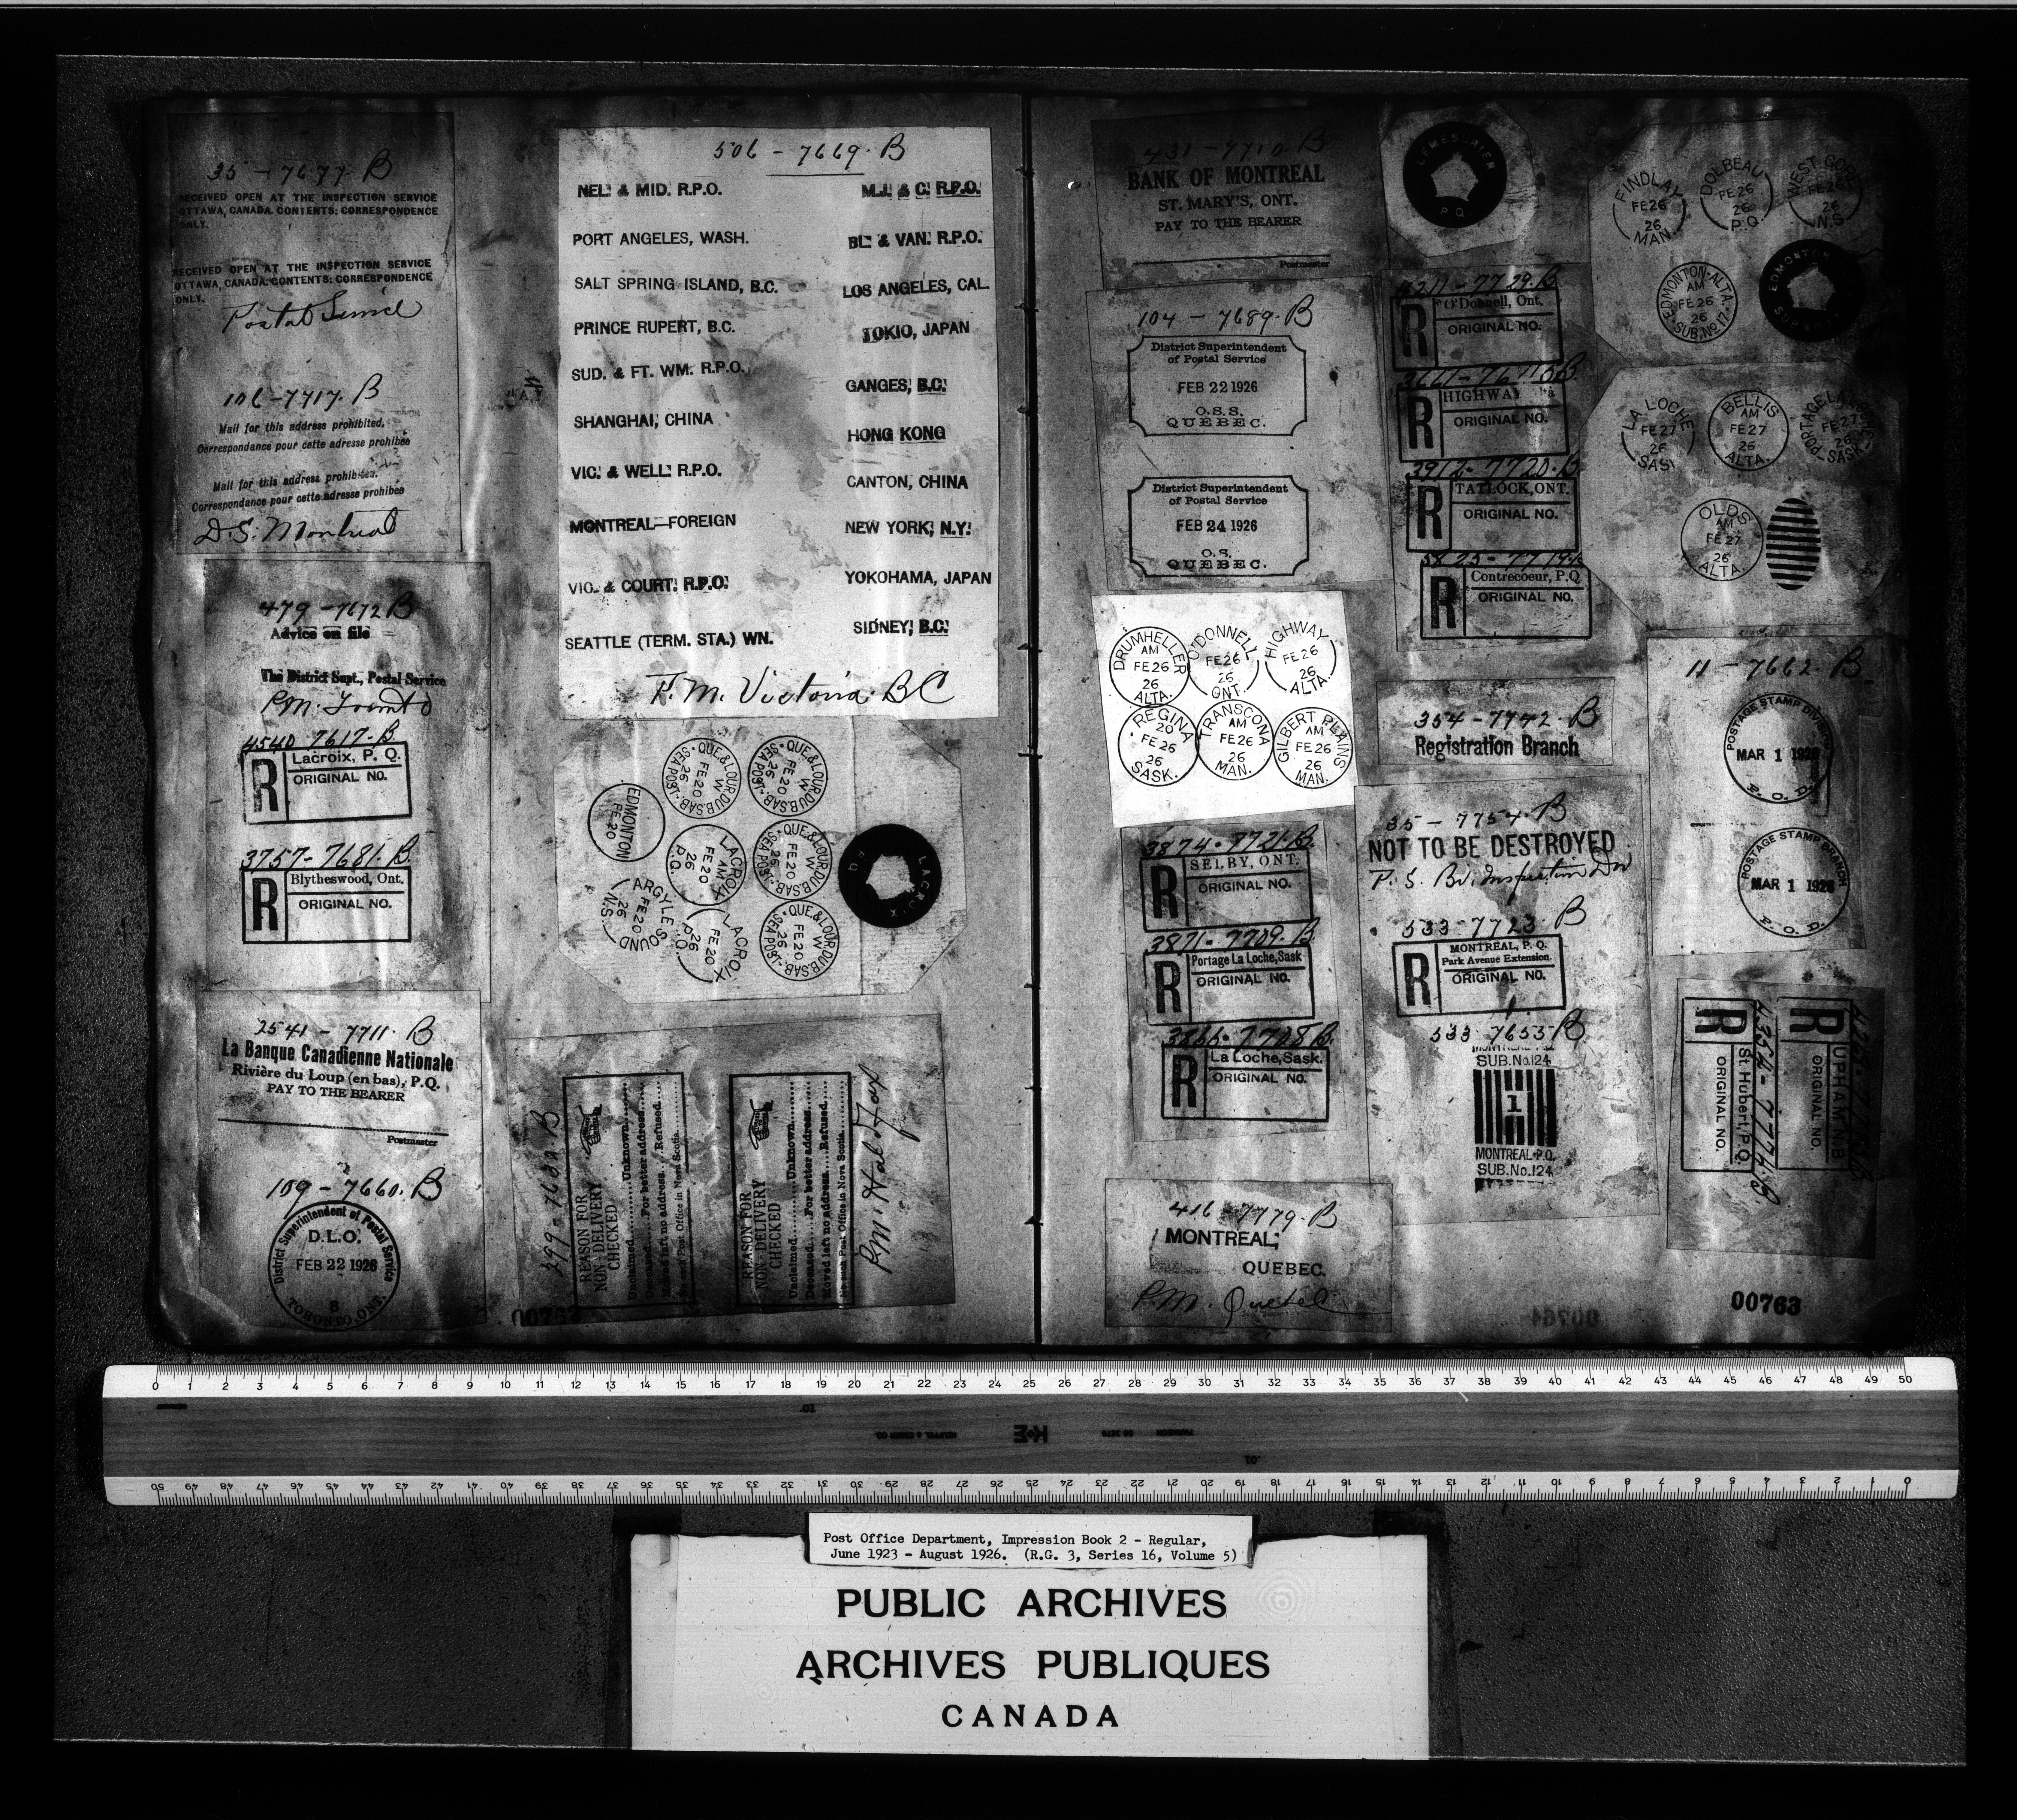 35 - 7677. B
RECEIVED OPEN AT THE INSPECTION SERVICE
OTTAWA, CANADA. CONTENTS: CORRESPONDENCE
ONLY.
RECEIVED OPEN AT THE INSPECTION SERVICE
OTTAWA, CANADA. CONTENTS: CORRESPONDENCE
ONLY.
Postal Service
106-7717. B
Mail for this address prohibited.
Correspondance pour cette adresse prohibée
Mail for this address prohibited.
Correspondance pour cette adresse prohibée
D.S. Montreal
479 - 7672 B
Advice on file
The District Supt., Postal Service
P.M. Toronto
4540 7617. B
R
Lacroix, P. Q.
ORIGINAL NO.
3757 - 7681. B.
R
Blytheswood, Ont.
ORIGINAL NO.
2541 - 7711. B
La Banque Canadienne Nationale
Rivière du Loup (en bas), P.Q.
PAY TO THE BEARER
Postmaster
109 - 7660. B
District Superintendent of Postal Service
D.L.O.
FEB 22 1926
8
TORONTO, ONT.
506 - 7669. B
NEL. & MID. R.P.O.
M.J. & C. R.P.O.
PORT ANGELES, WASH.
BL. & VAN. R.P.O.
SALT SPRING ISLAND, B.C.
LOS ANGELES, CAL.
PRINCE RUPERT, B.C.
TOKIO, JAPAN
SUD. & FT. WM. R.P.O.
GANGES, B.C.
SHANGHAI, CHINA
HONG KONG
VIC. & WELL. R.P.O.
CANTON, CHINA
MONTREAL—FOREIGN
NEW YORK, N.Y.
VIC. & COURT. R.P.O.
YOKOHAMA, JAPAN
SEATTLE (TERM. STA.) WN.
SIDNEY, B.C.
P.M. Victoria. BC
QUE. & LOUR. DU B. SAB.
W
FE 20
26
SEA POST
QUE. & LOUR. DU B. SAB.
W
FE 20
26
SEA POST
EDMONTON
FE 20
LACROIX
AM
FE 20
26
P.Q.
QUE. & LOUR. DU B. SAB.
W
FE 20
26
SEA POST
LACROIX
P.Q.
ARGYLE SOUND
FE 20
26
N.S.
LACROIX
FE 20
26
P.Q.
QUE. & LOUR. DU B. SAB.
W
FE 20
26
SEA POST
299 - 7682 B
REASON FOR
NON-DELIVERY
CHECKED
Unclaimed........Unknown........
Deceased.....For better address....
Moved left no address....Refused....
No such Post Office in Nova Scotia......
REASON FOR
NON-DELIVERY
CHECKED
Unclaimed........Unknown........
Deceased.....For better address....
Moved left no address....Refused....
No such Post Office in Nova Scotia......
P.M. Halifax
00762
431 - 7710. B
BANK OF MONTREAL
ST. MARY'S, ONT.
PAY TO THE BEARER
Postmaster
104 - 7689. B
District Superintendent
of Postal Service
FEB 22 1926
O.S.S.
QUEBEC.
District Superintendent
of Postal Service
FEB 24 1926
O.S.
QUEBEC.
DRUMHELLER
AM
FE 26
26
ALTA.
O'DONNELL
FE 26
26
ONT.
HIGHWAY
FE 26
26
ALTA.
REGINA
20
FE 26
26
SASK.
TRANSCONA
AM
FE 26
26
MAN.
GILBERT PLAINS
AM
FE 26
26
MAN.
3874 - 7721. B.
R
SELBY, ONT.
ORIGINAL NO.
3871 - 7709. B
R
Portage La Loche, Sask
ORIGINAL NO.
3866 - 7708 B.
R
La Loche, Sask.
ORIGINAL NO.
416 - 7779. B
MONTREAL,
QUEBEC.
P.M. Quebec
LEMESURIER
P.Q.
R
O'Donnell, Ont.
ORIGINAL NO.
R
HIGHWAY
ORIGINAL NO.
3912 - 7720. B
R
TATLOCK, ONT.
ORIGINAL NO.
R
Contrecoeur, P.Q.
ORIGINAL NO.
354 - 7742. B
Registration Branch
35 - 7754. B
NOT TO BE DESTROYED
P. S. Br. Inspection Div
533 - 7723 B
R
MONTREAL, P. Q.
Park Avenue Extension.
ORIGINAL NO.
533 7653 B
SUB. No. 124
1
MONTREAL P.Q.
SUB. No. 124
FINDLAY
FE 26
26
MAN.
DOLBEAU
FE 26
26
P.Q.
WEST GORE
FE 26
26
N.S.
EDMONTON-ALTA.
AM
FE 26
26
SUB. No. 17
EDMONTON
SUB No 17
LA LOCHE
FE 27
26
SASK
BELLIS
AM
FE 27
26
ALTA.
PORTAGE LA LOCHE
FE 27
26
SASK
OLDS
AM
FE 27
26
ALTA.
11 - 7662. B
POSTAGE STAMP DIVISION
MAR 1 1926
P. O. D.
POSTAGE STAMP BRANCH
MAR 1 1926
P. O. D.
R
UPHAM, N.B.
ORIGINAL NO.
4354 - 7776. B
R
St. Hubert, P.Q.
ORIGINAL NO.
00764
00763
0 1 2 3 4 5 6 7 8 9 10 11 12 13 14 15 16 17 18 19 20 21 22 23 24 25 26 27 28 29 30 31 32 33 34 35 36 37 38 39 40 41 42 43 44 45 46 47 48 49 50
K+E
KEUFFEL & ESSER CO.
PARAGON
0 1 2 3 4 5 6 7 8 9 10 11 12 13 14 15 16 17 18 19 20 21 22 23 24 25 26 27 28 29 30 31 32 33 34 35 36 37 38 39 40 41 42 43 44 45 46 47 48 49 50
Post Office Department, Impression Book 2 - Regular,
June 1923 - August 1926. (R.G. 3, Series 16, Volume 5)
PUBLIC ARCHIVES
ARCHIVES PUBLIQUES
CANADA